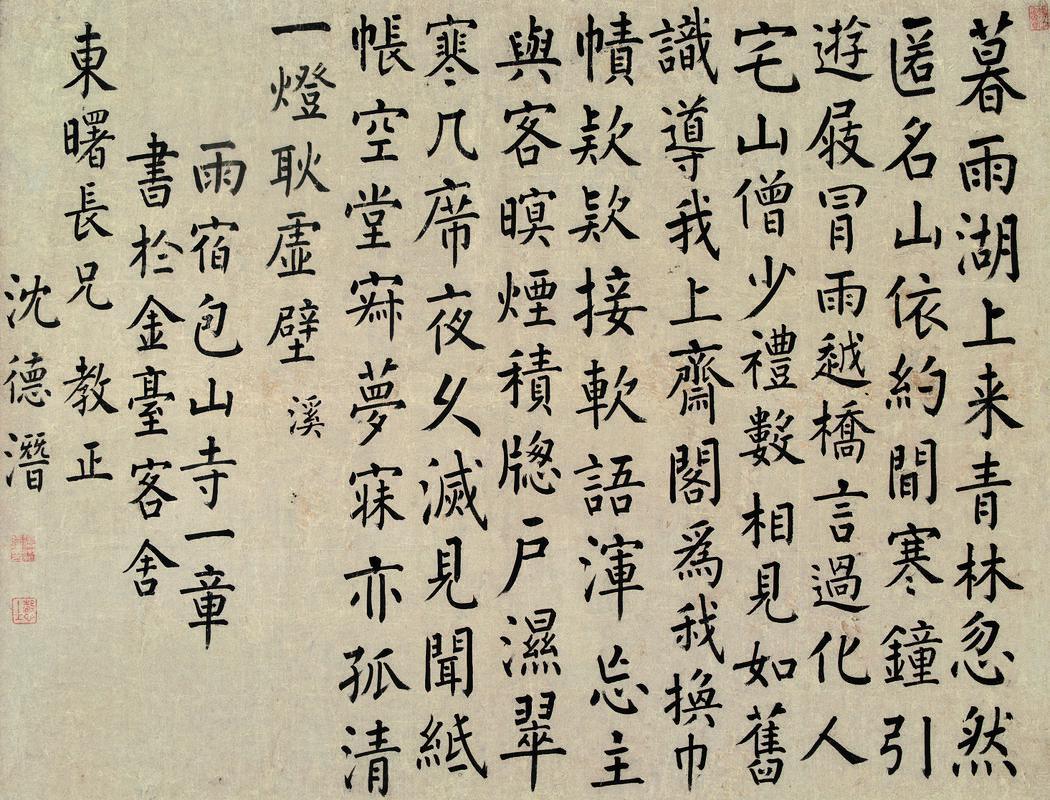 暮雨湖上来青林忽然
匿名山依約聞寒鐘引
遊屐冒雨越橋言過化人
宅山僧少禮數相見如舊
識導我上齋閣爲我換巾
幘欵欵接軟語渾忘主
與客暝煙積牕戶濕翠
寒几席夜久滅見聞紙
帳空堂寂夢寐亦孤清
一燈耿虛壁 溪
雨宿包山寺一章
書於金臺客舍
東曙長兄 教正
沈德潛